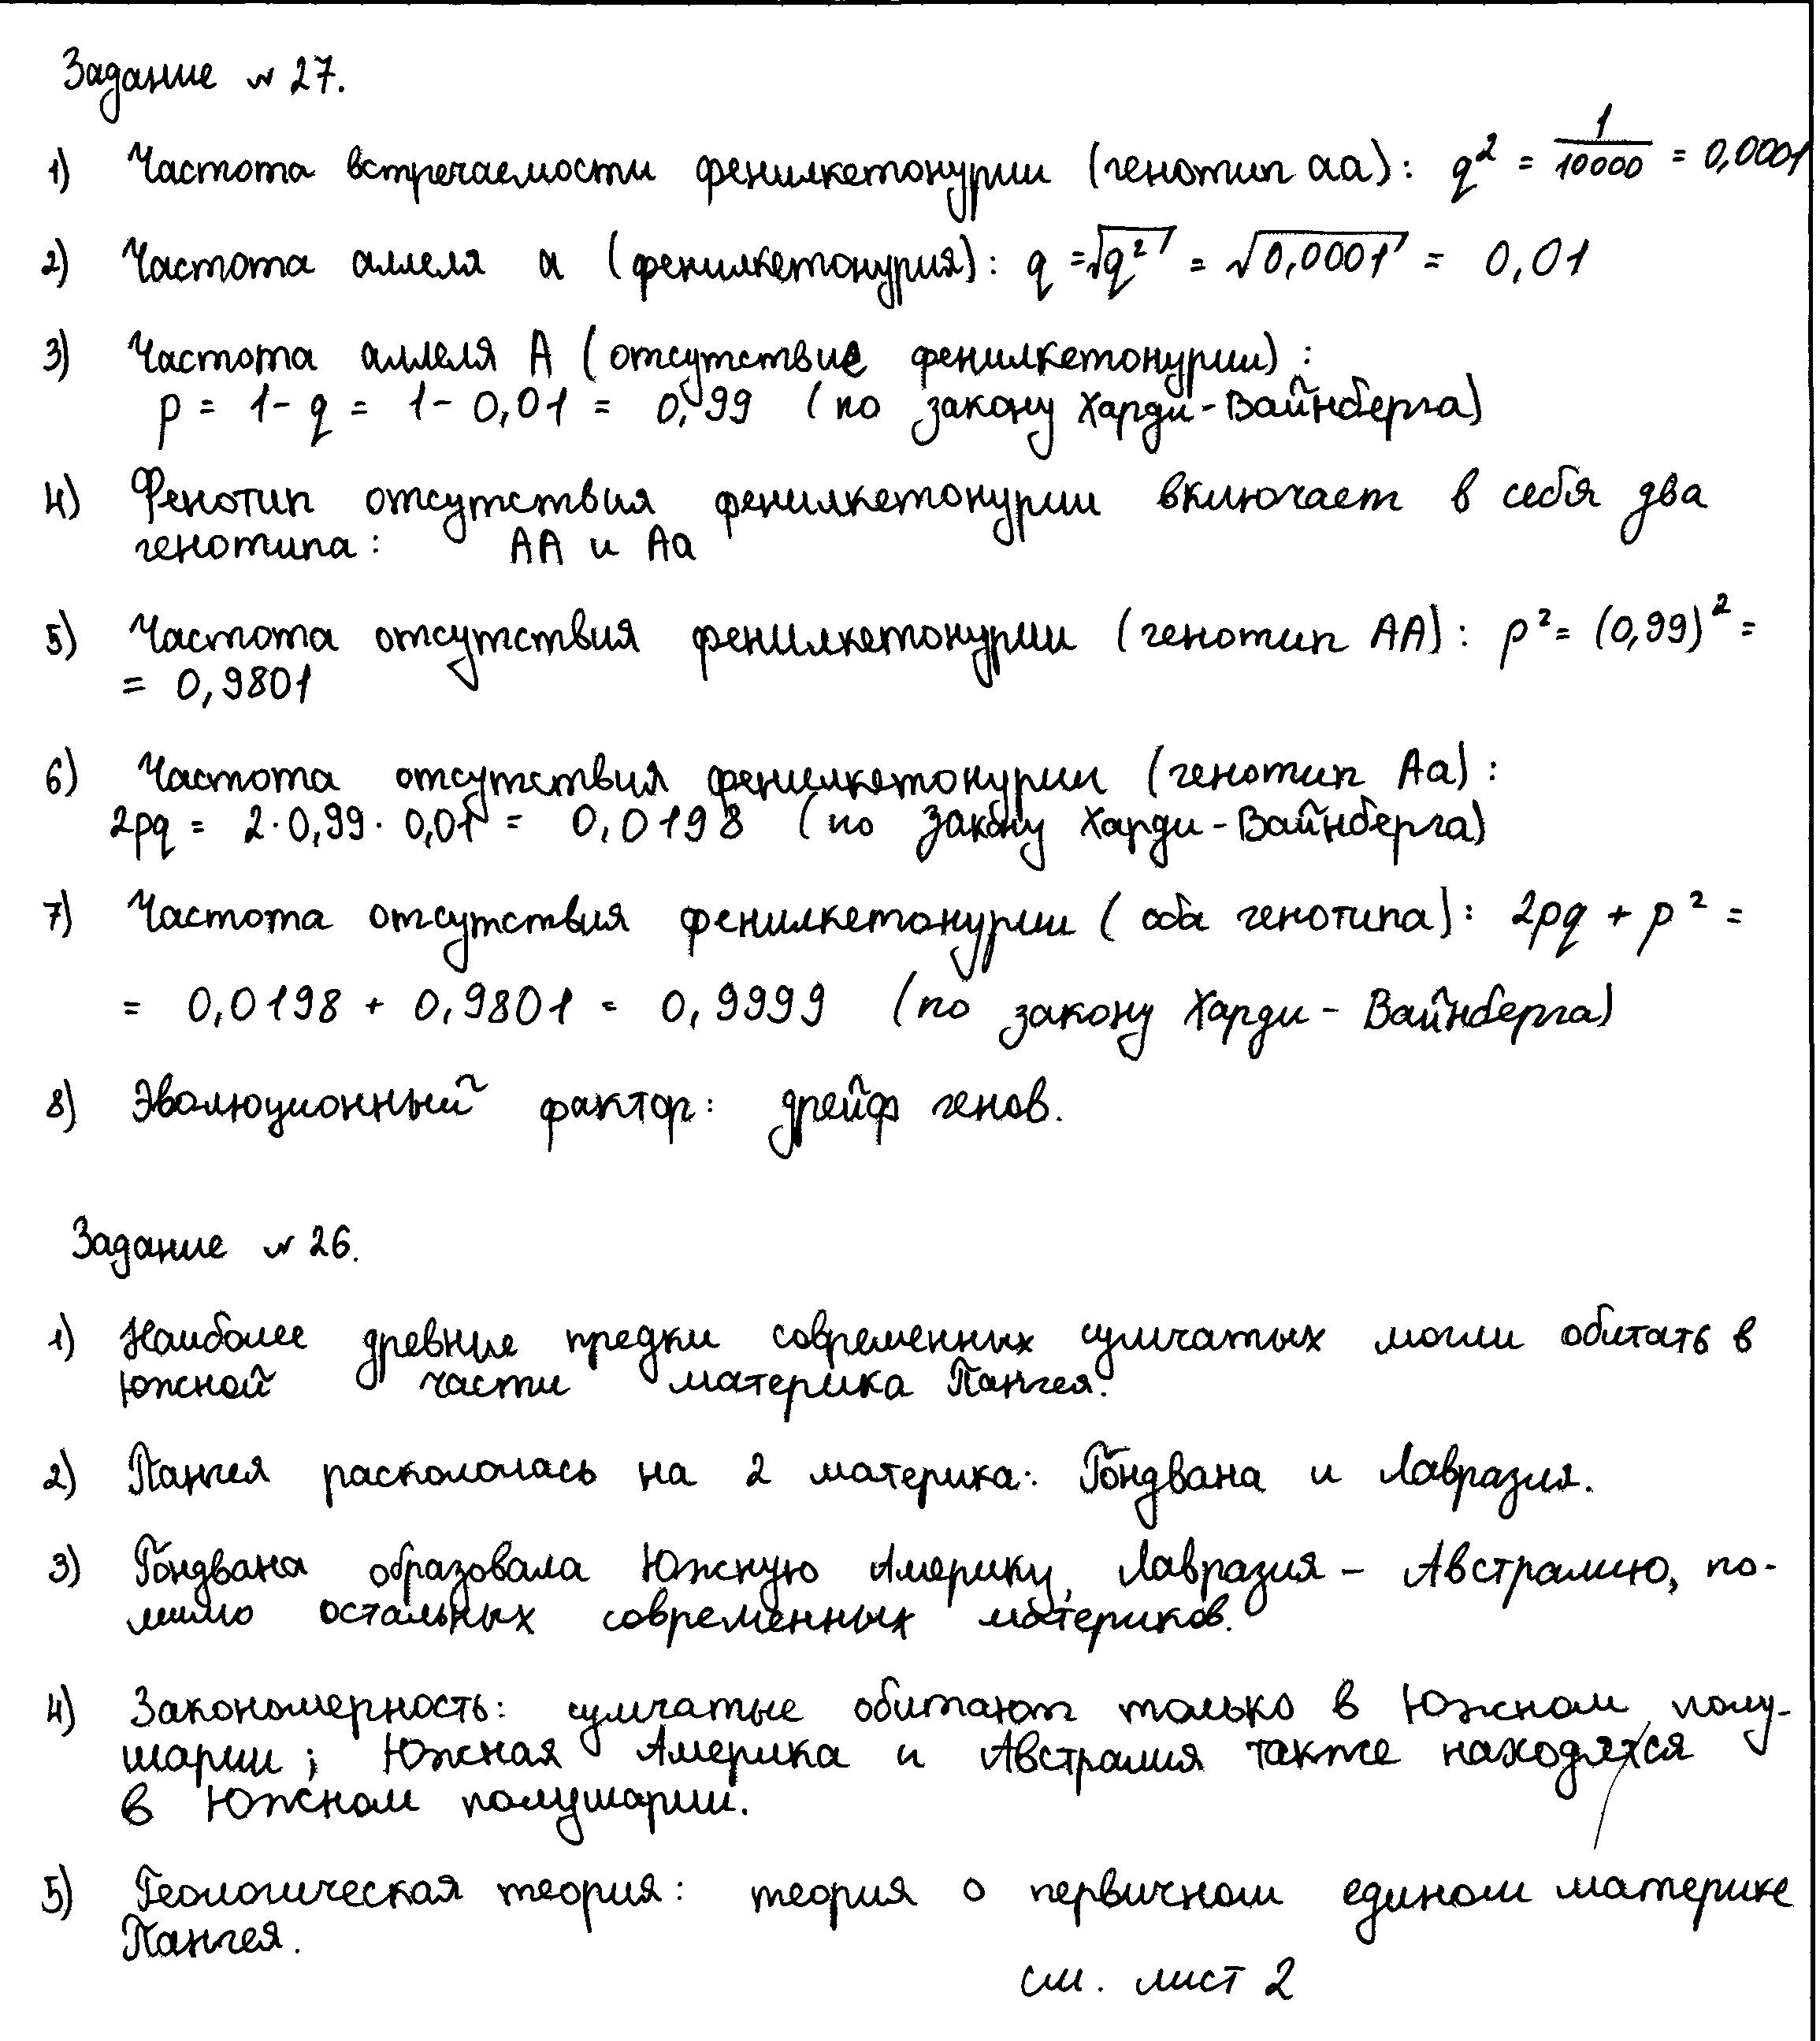 Задание № 27.
1) Частота встречаемости фенилкетонурии (генотип aa): q² = 1/10000 = 0,0001
2) Частота аллеля a (фенилкетонурия): q = √q² = √0,0001 = 0,01
3) Частота аллеля A (отсутствие фенилкетонурии):
p = 1 - q = 1 - 0,01 = 0,99 (по закону Харди-Вайнберга)
4) Фенотип отсутствия фенилкетонурии включает в себя два
генотипа: AA и Aa
5) Частота отсутствия фенилкетонурии (генотип AA): p² = (0,99)² =
= 0,9801
6) Частота отсутствия фенилкетонурии (генотип Aa):
2pq = 2·0,99·0,01 = 0,0198 (по закону Харди-Вайнберга)
7) Частота отсутствия фенилкетонурии (оба генотипа): 2pq + p² =
= 0,0198 + 0,9801 = 0,9999 (по закону Харди-Вайнберга)
8) Эволюционный фактор: дрейф генов.
Задание № 26.
1) Наиболее древние предки современных сумчатых могли обитать в
Южной части материка Пангея.
2) Пангея раскололась на 2 материка: Гондвана и Лавразия.
3) Гондвана образовала Южную Америку, Лавразия - Австралию, по-
мимо остальных современных материков.
4) Закономерность: сумчатые обитают только в Южном полу-
шарии; Южная Америка и Австралия также находятся
в Южном полушарии.
5) Геологическая теория: теория о первичном едином материке
Пангея.
см. лист 2